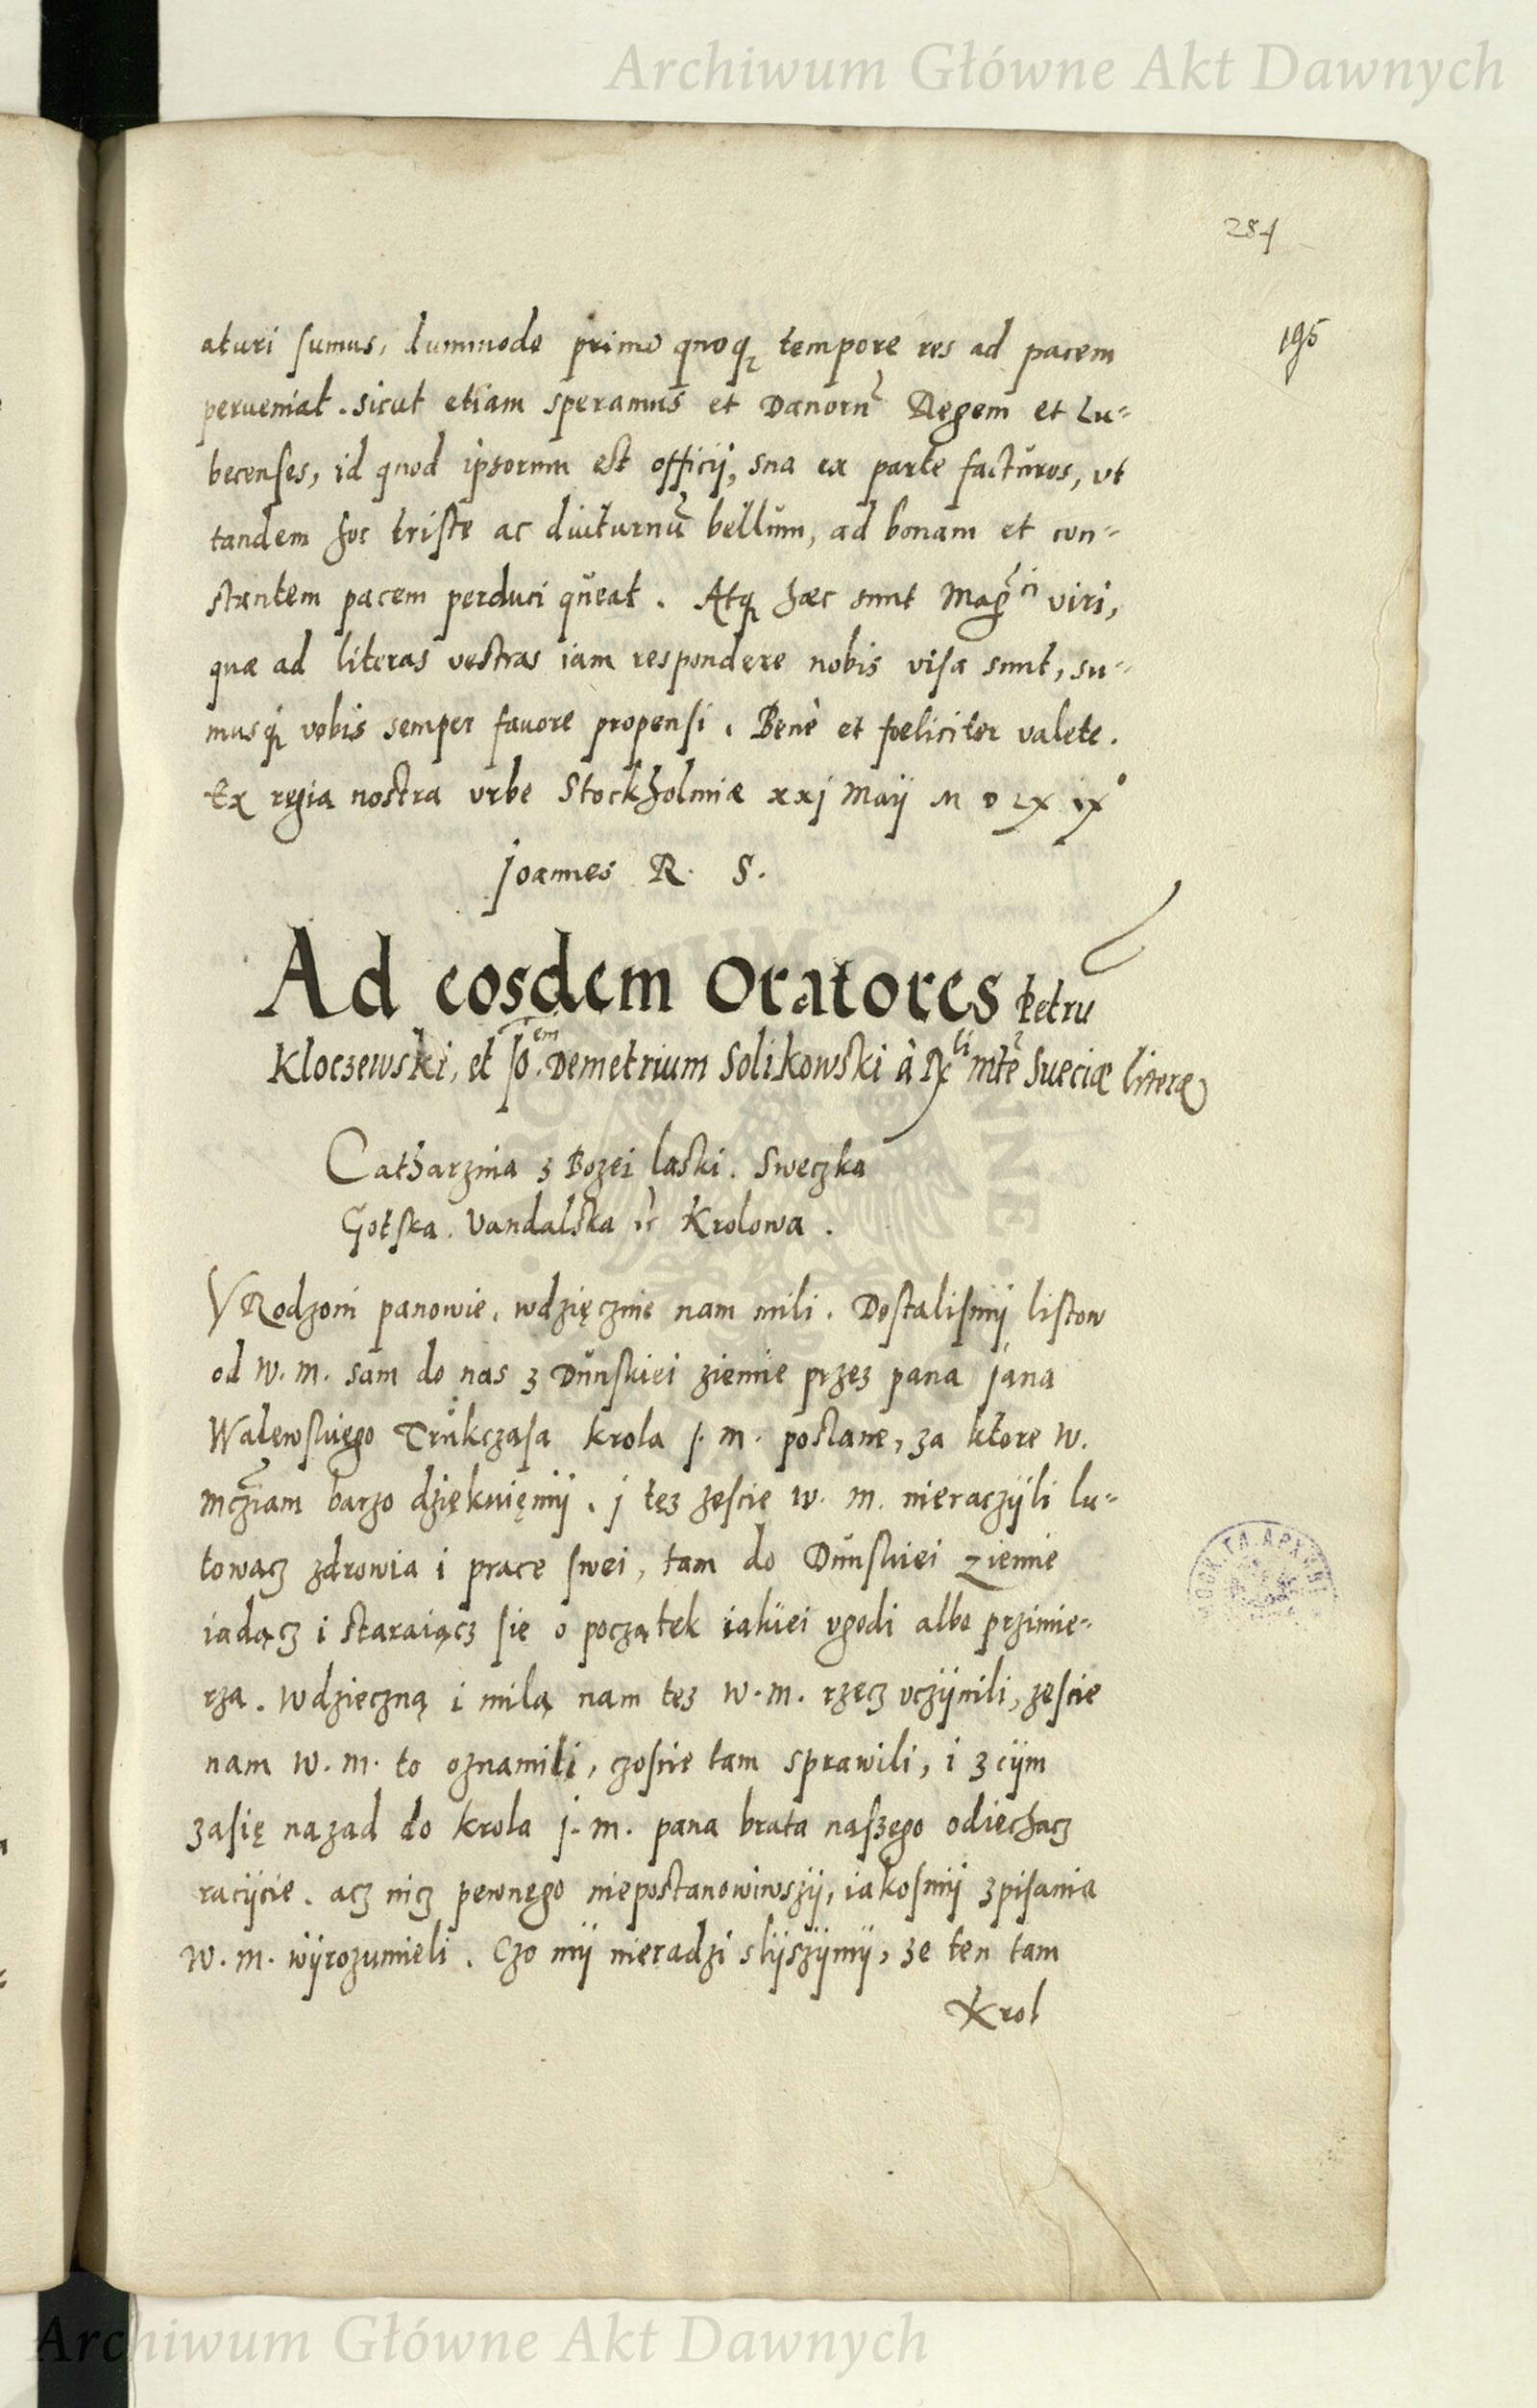 Archiwum Główne Akt Dawnych
284
195
aturi sumus, dummodo primo quoq tempore res ad pacem
perueniat. sicut etiam speramus et Danorũ Regem et Lu-
becenses, id quod ipsorum est officij, sua ex parte facturos, vt
tandem hoc triste ac diuturnũ bellum, ad bonam et con-
stantem pacem perduci queat. Atq hæc sunt Mag̃ci viri,
quæ ad literas vestras iam respondere nobis visa sunt, su-
musq vobis semper fauore propensi. Benè et fœliciter valete.
Ex regia nostra vrbe Stockholmiæ xxj Maij M D LX ixº
Joannes R. S.
Ad eosdem Oratores Petru
Kloczewski, et Jo.em Demetrium Solikowski à R mte Sueciæ literæ
Catharzina z Bozei laski. Sweczka
Gotska. Vandalska ic Krolowa.
VRodzoni panowie, wdzięcznie nam mili. Dostalismÿ listow
od W. M. sam do nas z Dunskiei ziemie przez pana Jana
Walewskiego Trukczasa krola j. m. poslane, za ktore W.
Mcziam barzo dziękuięmÿ. j tez zescie W. M. nieraczÿli lu-
towacz zdrowia i prace swei, tam do Dunskiei ziemie
iadącz i staraiącz sie o początek iakiei vgodi albo przimie-
rza. Wdzieczną i milą nam tez W. M. rzecz vczÿnili, zescie
nam W. M. to oznamili, czoscie tam sprawili, i z cÿm
zasię nazad do krola j. m. pana brata naszego odiechacz
racÿcie. acz nicz pewnego niepostanowiwszÿ, iakosmÿ z pisania
W. M. wÿrozumieli. Czo mÿ nieradzi slÿszÿmÿ, ze ten tam
Krol
Archiwum Główne Akt Dawnych